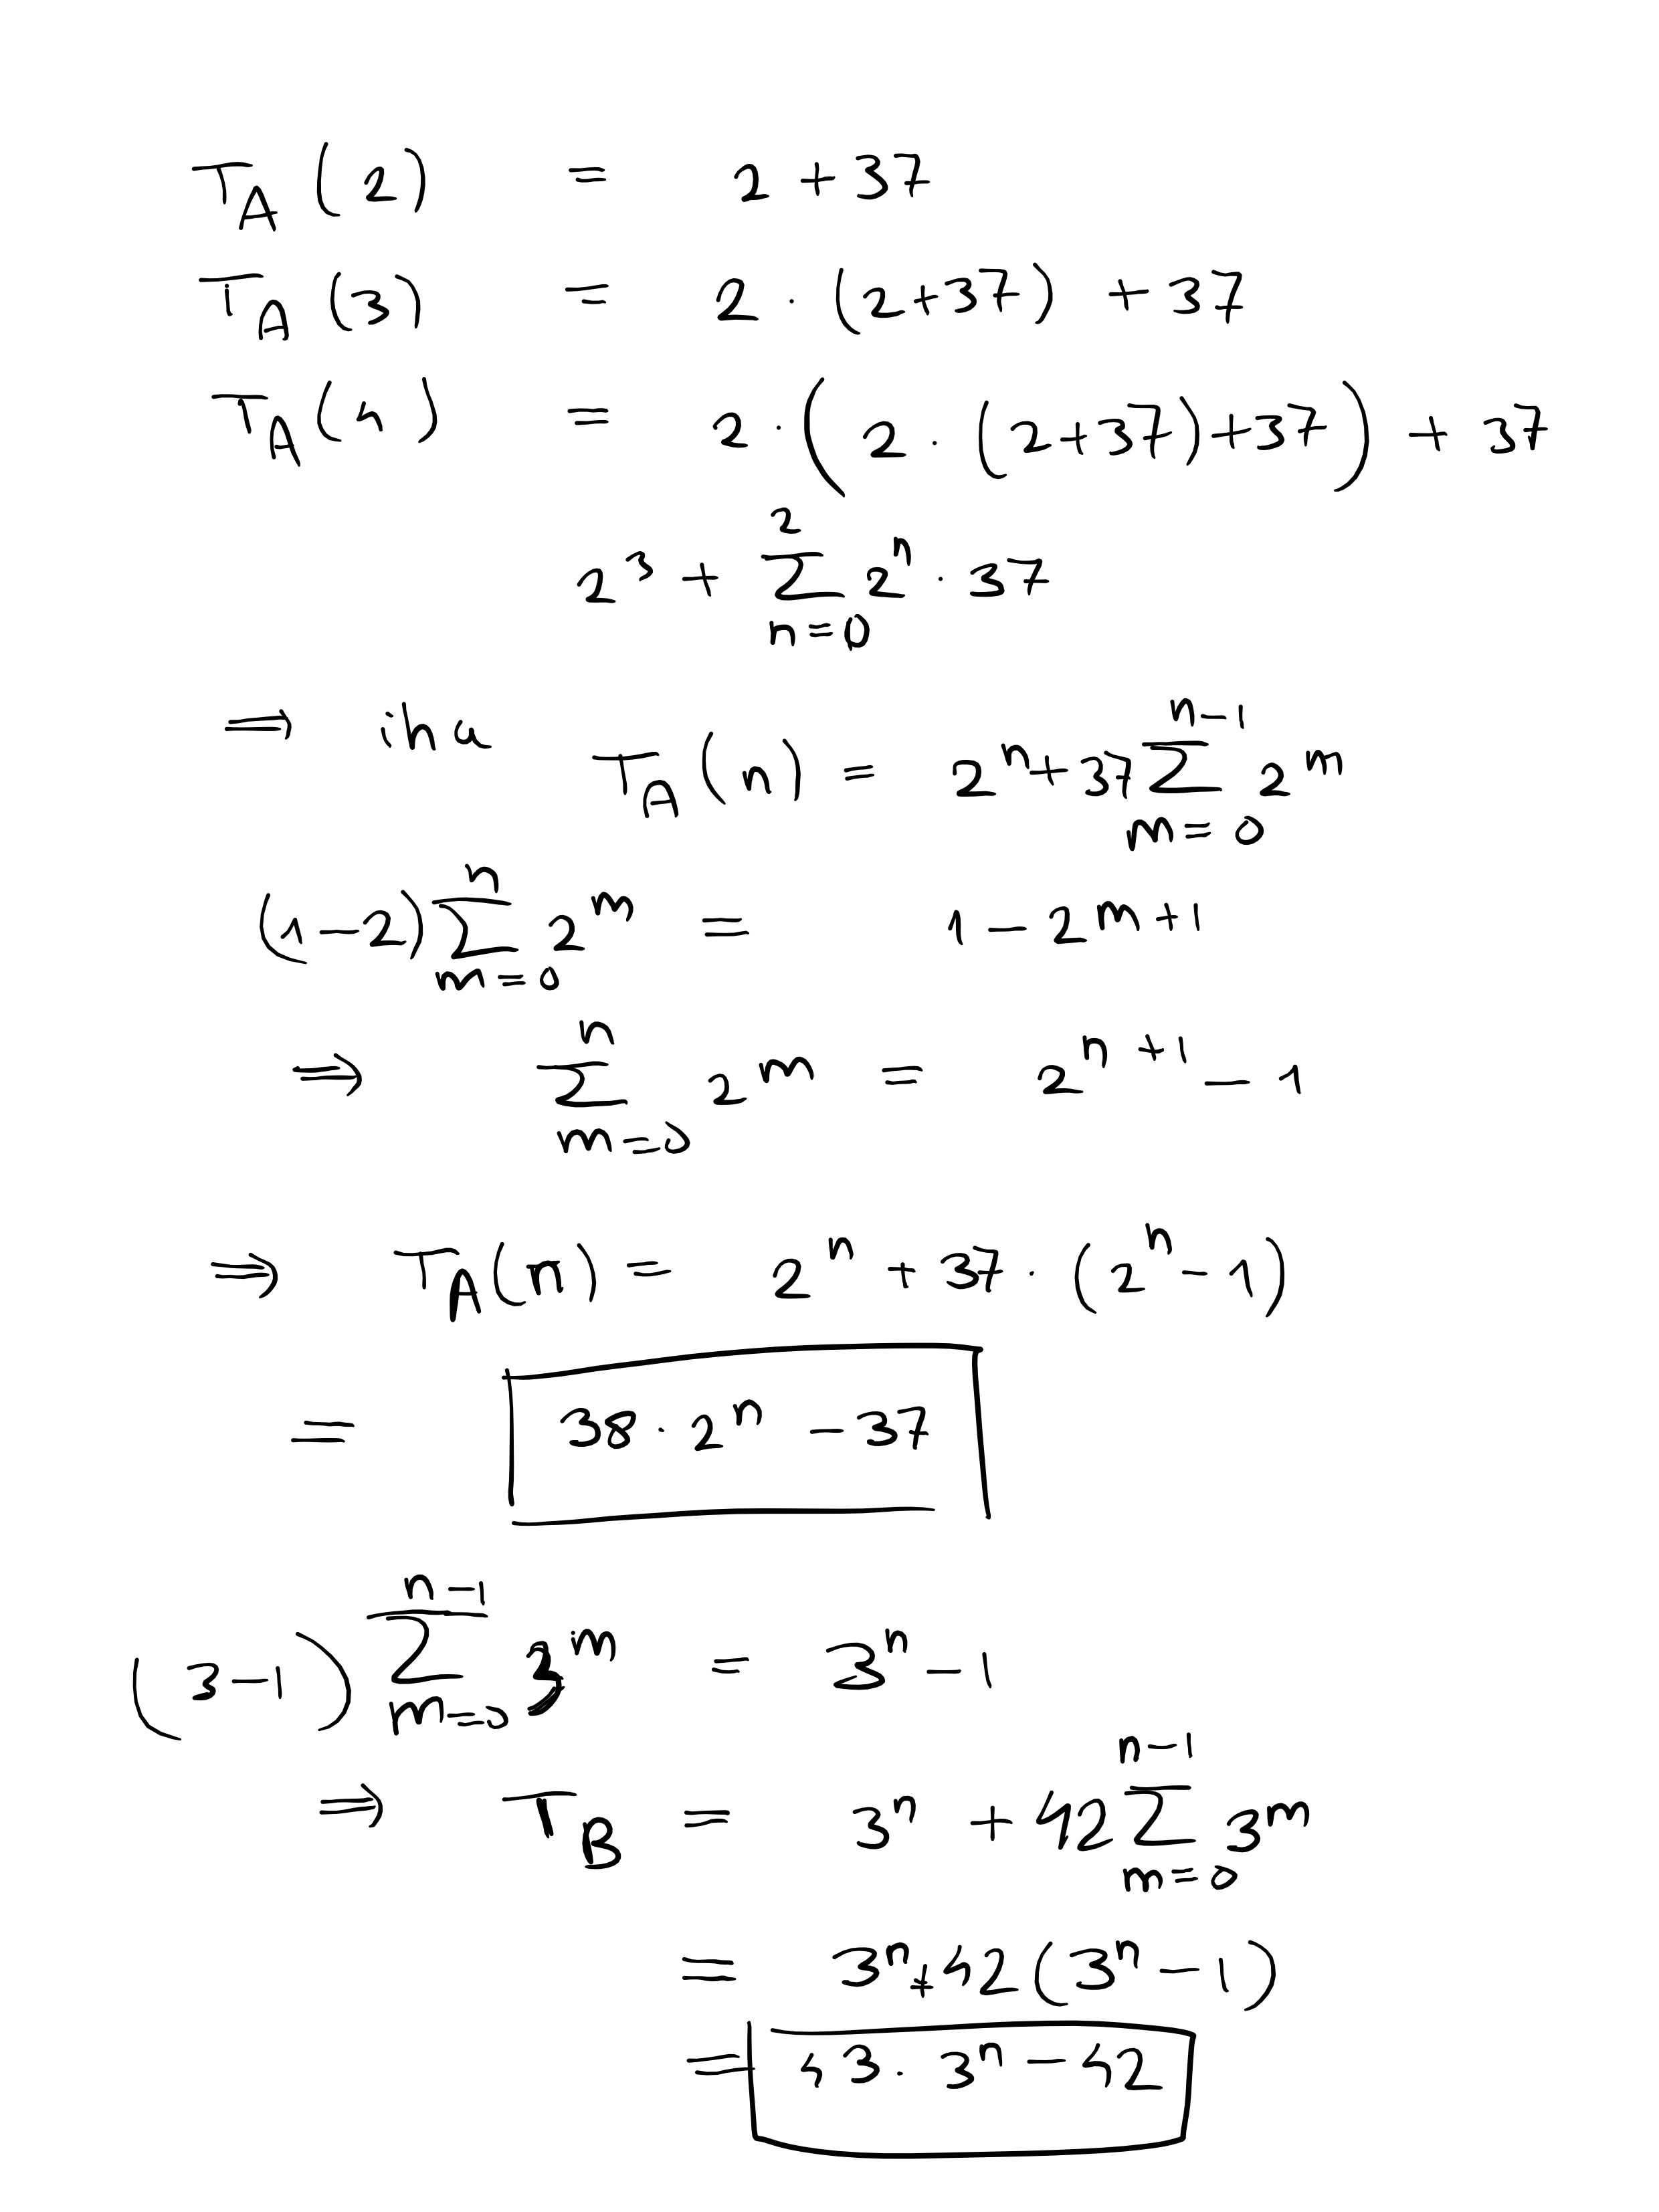 T_A(2) = 2 + 37
T_A(3) = 2 · (2+37) + 37
T_A(4) = 2 · (2 · (2+37)+37) + 37
2^3 + \sum_{n=0}^{2} 2^n · 37
⇒ T_A(n) = 2^n + 37 \sum_{m=0}^{n-1} 2^m
(1-2) \sum_{m=0}^{n} 2^m = 1 - 2^{m+1}
⇒ \sum_{m=0}^{n} 2^m = 2^{n+1} - 1
⇒ T_A(n) = 2^n + 37 · (2^n - 1)
= 38 · 2^n - 37
(3-1) \sum_{m=0}^{n-1} 3^m = 3^n - 1
⇒ T_B = 3^n + 42 \sum_{m=0}^{n-1} 3^m
= 3^n + 42(3^n - 1)
= 43 · 3^n - 42